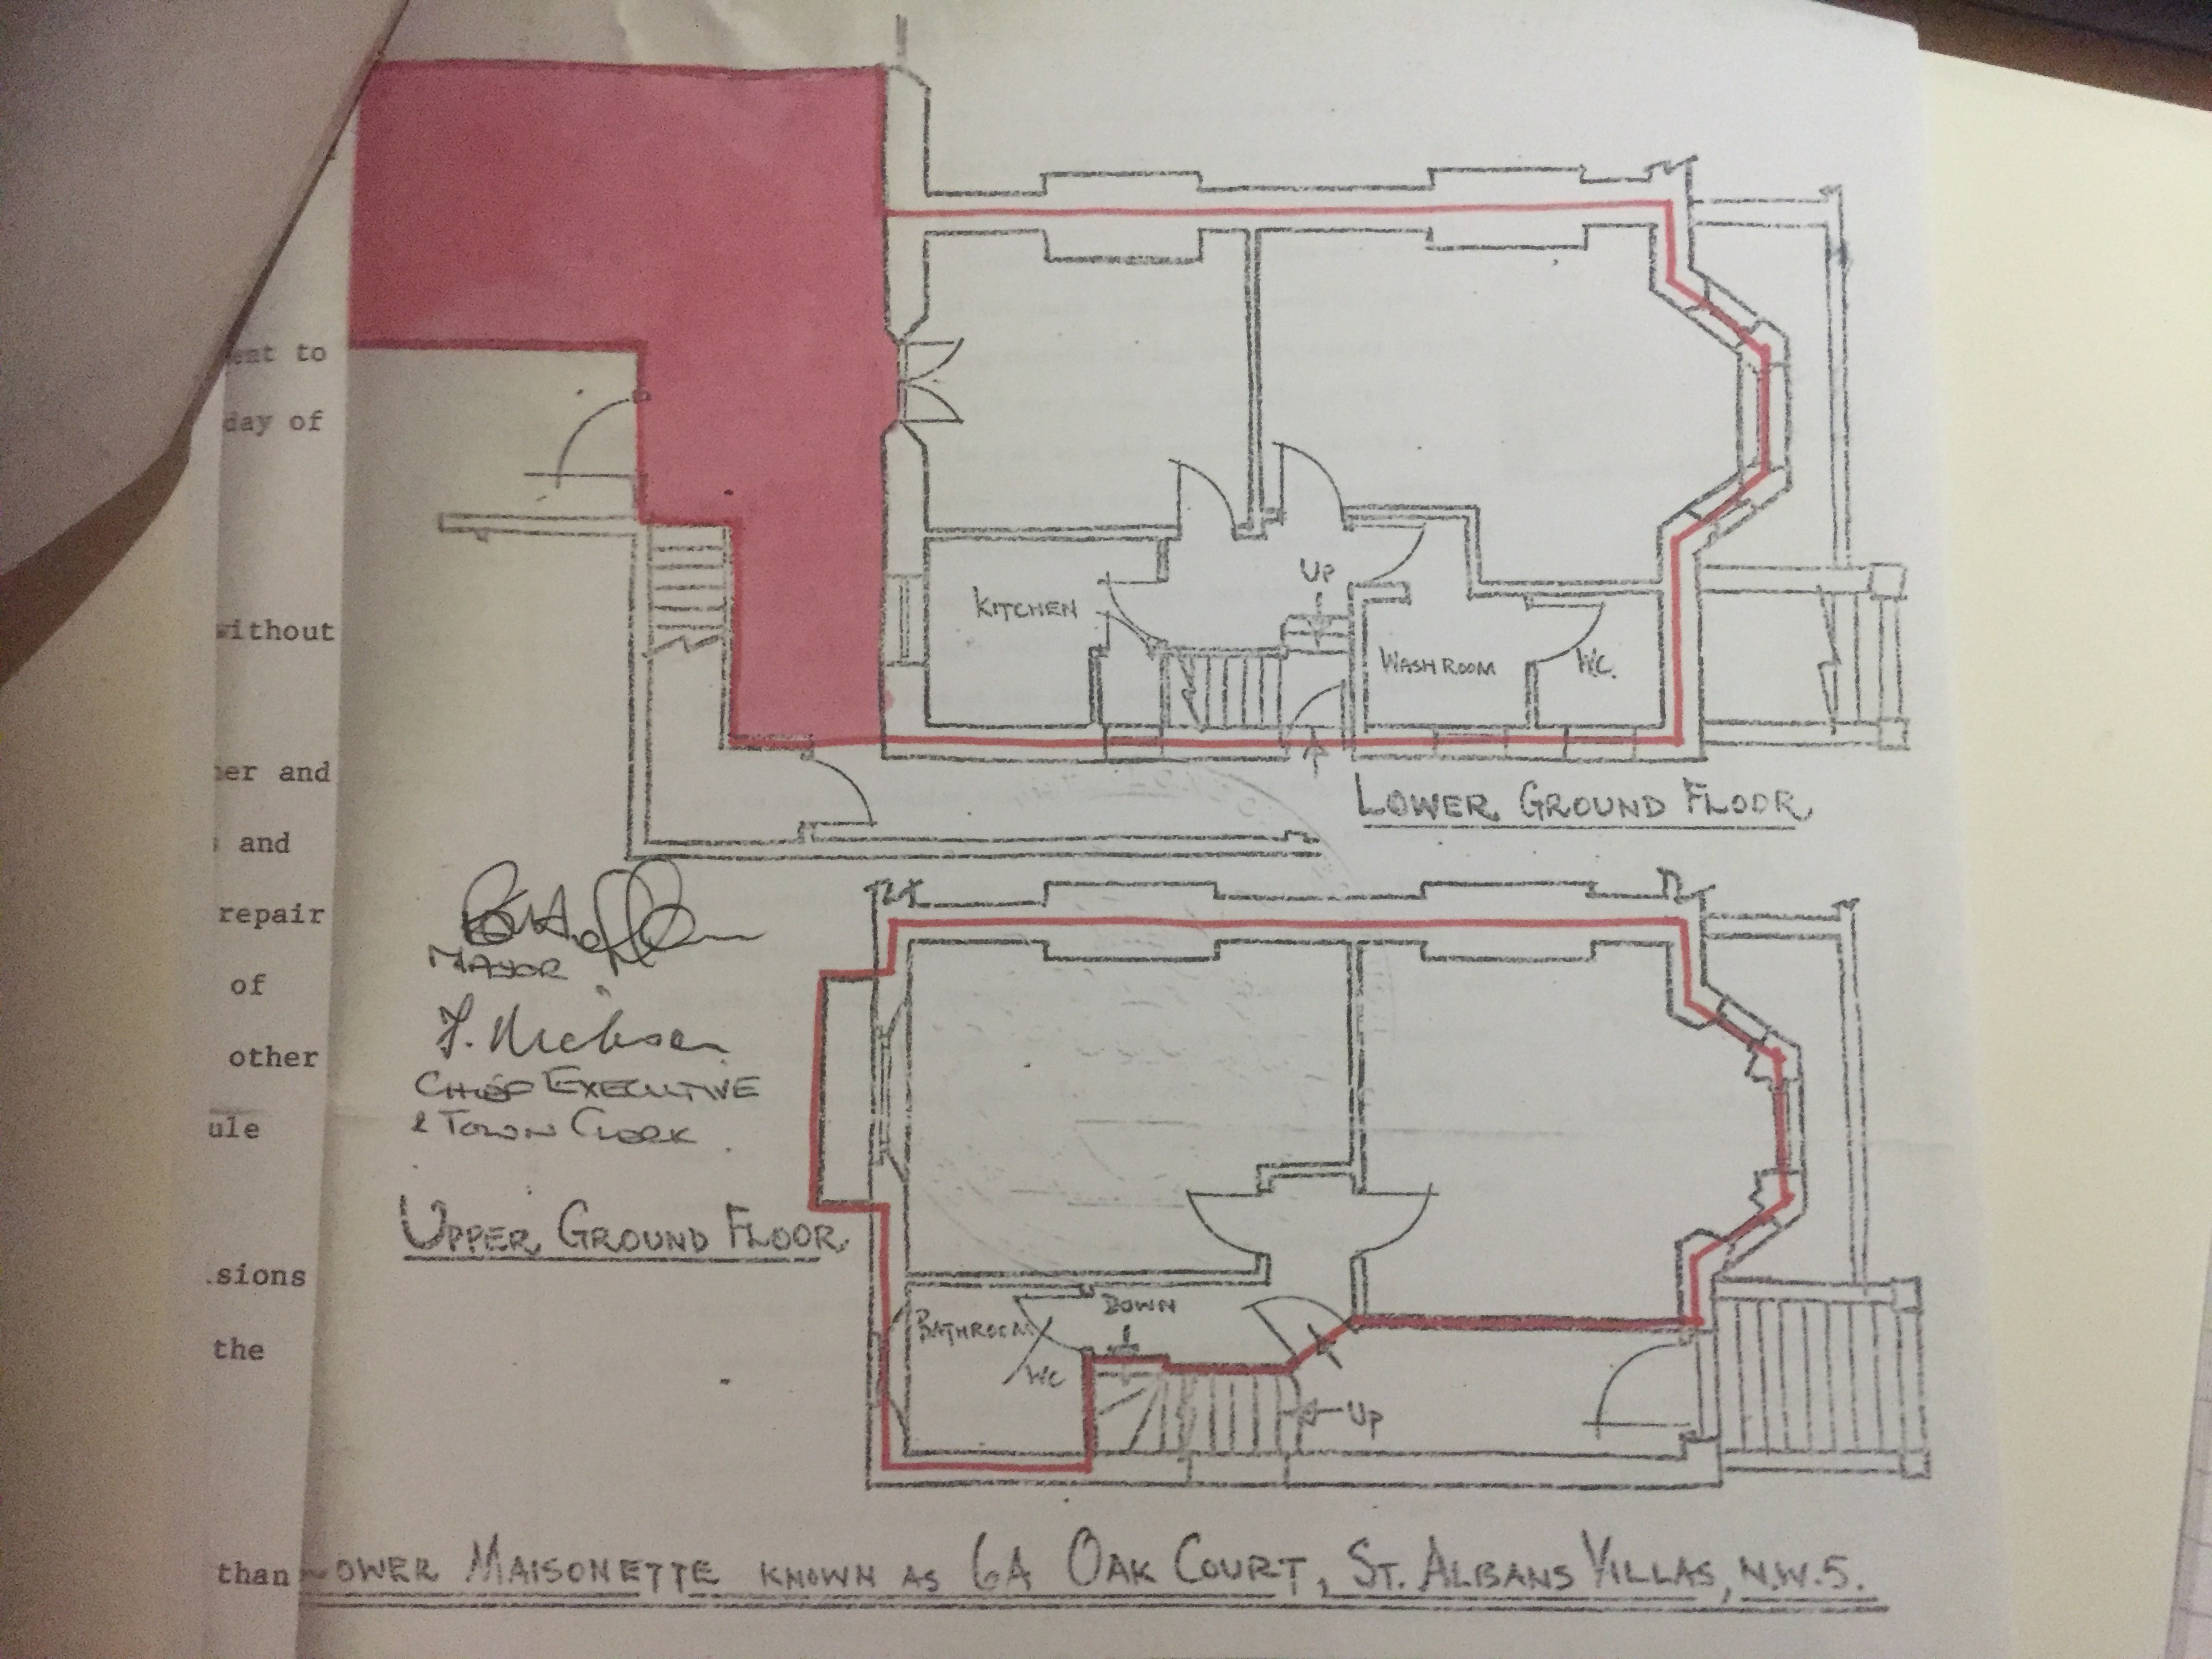 KITCHEN
UP
WASHROOM
W.C.
LOWER GROUND FLOOR
MAYOR
CHIEF EXECUTIVE
& TOWN CLERK.
UPPER GROUND FLOOR
BATHROOM
DOWN
WC
UP
OWER MAISONETTE KNOWN AS 6A OAK COURT, ST. ALBANS VILLAS, N.W.5.
to
day of
without
and
and
repair
of
other
ule
sions
the
than